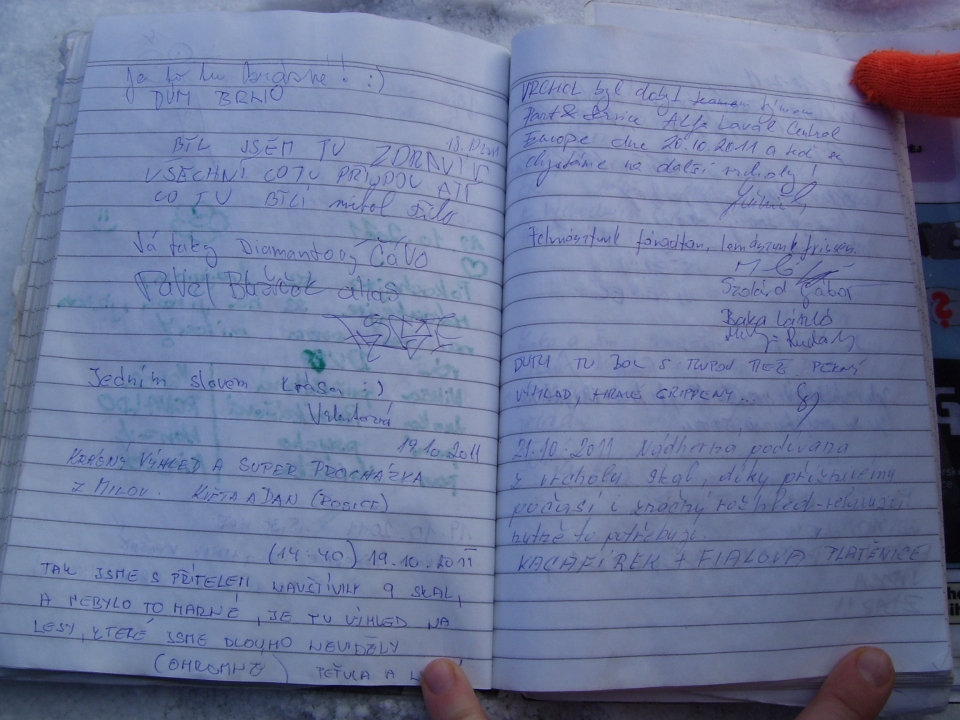 Já to tu :)
DŮM BRNO
BYL JSEM TU ZDRAVÍM
VŠECHNI CO TU PŘIJDOU AŤ
CO TU BYLI
Já taky Diamantový Čávo
Pavel alias
Jedním slovem krása :)
19.10.2011
KRÁSNÝ VÝHLED A SUPER PROCHÁZKA
Z MILOV. KVĚTA A DAN (POSICE)
(14:40) 19.10.2011
TAK JSME S PŘÍTELEM NAVŠTÍVILY 9 SKAL,
A NEBYLO TO MARNÉ, JE TU VÝHLED NA
LESY, KTERÉ JSME DLOUHO NEVIDĚLY
(OHROMNĚ) A
VRCHOL byl dobyt týmem
Part & Service Alfa Laval Central
Europe dne 20.10.2011 a už se
chystáme na další vrcholy!
Felmásztunk fáradtan, lemászunk frissen.
Szolárd Gábor
Baka László
TU BOL S TEŽ PEKNÝ
VÝHLAD,
21.10.2011 Nádherná podívaná
z vrcholu skal, díky příznivému
počasí i značný rozhled-relaxující
nutně to potřebuji.
KACAFÍREK + FIALOVÁ PLATĚNICE